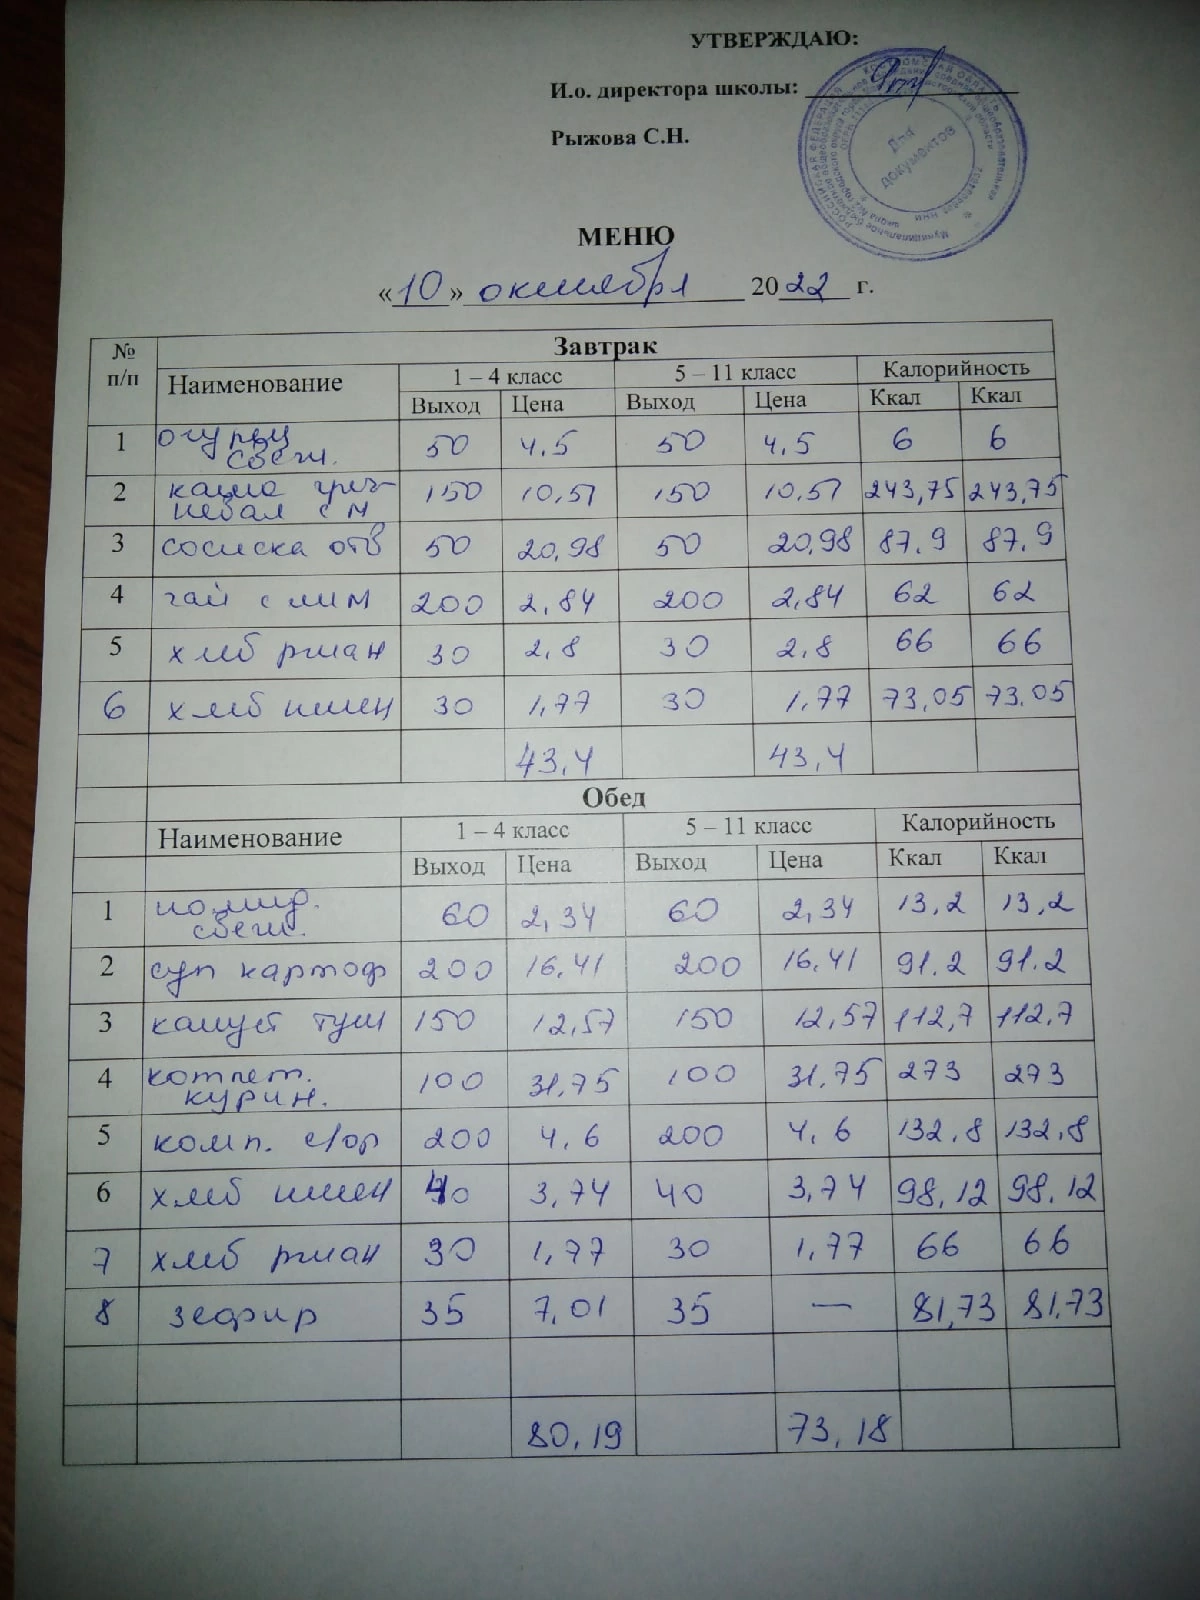 УТВЕРЖДАЮ:
И.о. директора школы:
Рыжова С.Н.
Для
документов
РОССИЙСКАЯ ФЕДЕРАЦИЯ КОСТРОМСКАЯ ОБЛАСТЬ
МЕНЮ
«10» октября 2022 г.
№ п/п Завтрак
Наименование 1 – 4 класс 5 – 11 класс Калорийность
Выход Цена Выход Цена Ккал Ккал
1 огурец свеж. 50 4,5 50 4,5 6 6
2 каша греч-
невая с м 150 10,51 150 10,51 243,75 243,75
3 сосиска отв 50 20,98 50 20,98 87,9 87,9
4 чай с лим 200 2,84 200 2,84 62 62
5 хлеб ржан 30 2,8 30 2,8 66 66
6 хлеб пшен 30 1,77 30 1,77 73,05 73,05
43,4 43,4
Обед
Наименование 1 – 4 класс 5 – 11 класс Калорийность
Выход Цена Выход Цена Ккал Ккал
1 помид.
свеж. 60 2,34 60 2,34 13,2 13,2
2 суп картоф 200 16,41 200 16,41 91.2 91.2
3 капуст туш 150 12,57 150 12,57 112,7 112,7
4 котлет.
курин. 100 31,75 100 31,75 273 273
5 комп. с/фр 200 4,6 200 4,6 132,8 132,8
6 хлеб пшен 40 3,74 40 3,74 98,12 98,12
7 хлеб ржан 30 1,77 30 1,77 66 66
8 зефир 35 7,01 35 — 81,73 81,73
80,19 73,18